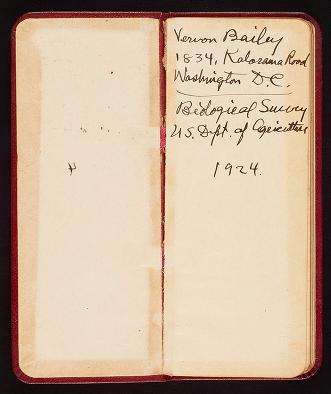 Vernon Bailey
1834, Kalorama Road
Washington D.C.
Biological Survey
U.S. Dpt. of Agriculture
1924.